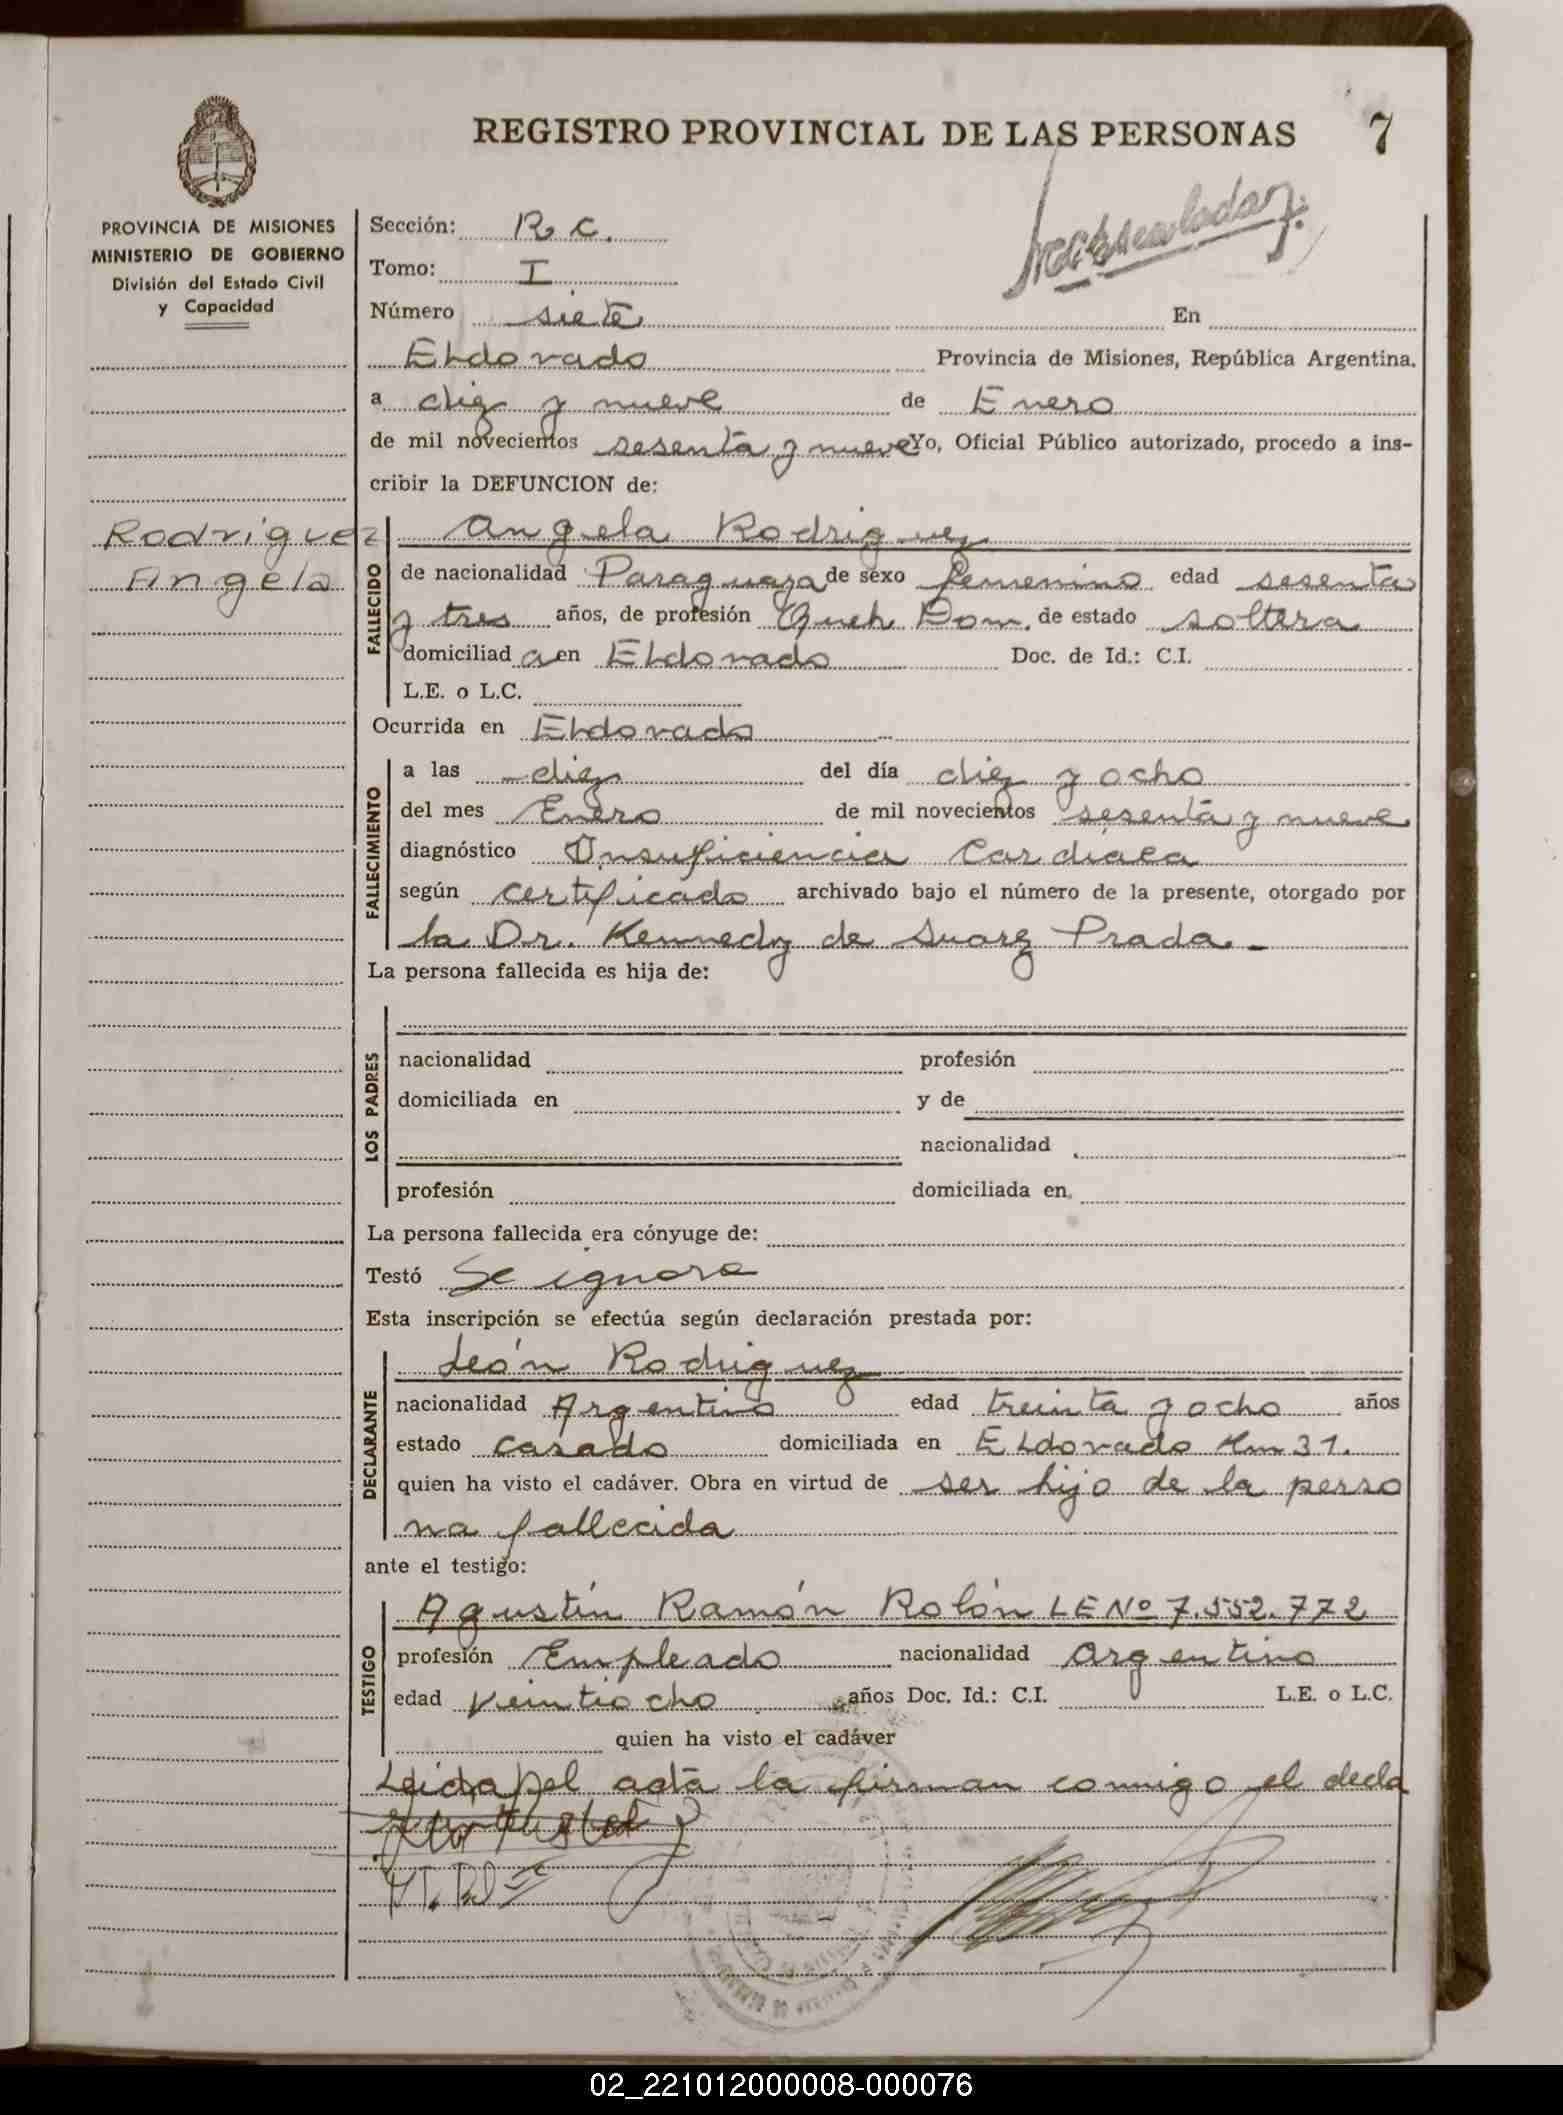 REGISTRO PROVINCIAL DE LAS PERSONAS 7
PROVINCIA DE MISIONES
MINISTERIO DE GOBIERNO
División del Estado Civil
y Capacidad
Rodriguez
Angela
Sección: R. C.
Tomo: I
Número siete En
Eldorado Provincia de Misiones, República Argentina.
a diez y nueve de Enero
de mil novecientos sesenta y nueve Yo, Oficial Público autorizado, procedo a ins-
cribir la DEFUNCION de:
FALLECIDO
Angela Rodriguez
de nacionalidad Paraguaya de sexo femenino edad sesenta
y tres años, de profesión Queh. Dom. de estado soltera
domiciliad a en Eldorado Doc. de Id.: C.I.
L.E. o L.C.
Ocurrida en Eldorado
FALLECIMIENTO
a las diez del día diez y ocho
del mes Enero de mil novecientos sesenta y nueve
diagnóstico Insuficiencia Cardiaca
según certificado archivado bajo el número de la presente, otorgado por
la Dr. Kennedy de Suarez Prada.-
La persona fallecida es hija de:
LOS PADRES
nacionalidad profesión
domiciliada en y de
nacionalidad
profesión domiciliada en
La persona fallecida era cónyuge de:
Testó Se ignora
Esta inscripción se efectúa según declaración prestada por:
DECLARANTE
León Rodriguez
nacionalidad Argentino edad treinta y ocho años
estado casado domiciliada en Eldorado Km 31.
quien ha visto el cadáver. Obra en virtud de ser hijo de la perso
na fallecida
ante el testigo:
TESTIGO
Agustín Ramón Rolón LE Nº 7.552.772
profesión Empleado nacionalidad Argentino
edad veintiocho años Doc. Id.: C.I. L.E. o L.C.
quien ha visto el cadáver
Leida el acta la firman conmigo el decla
02_221012000008-000076